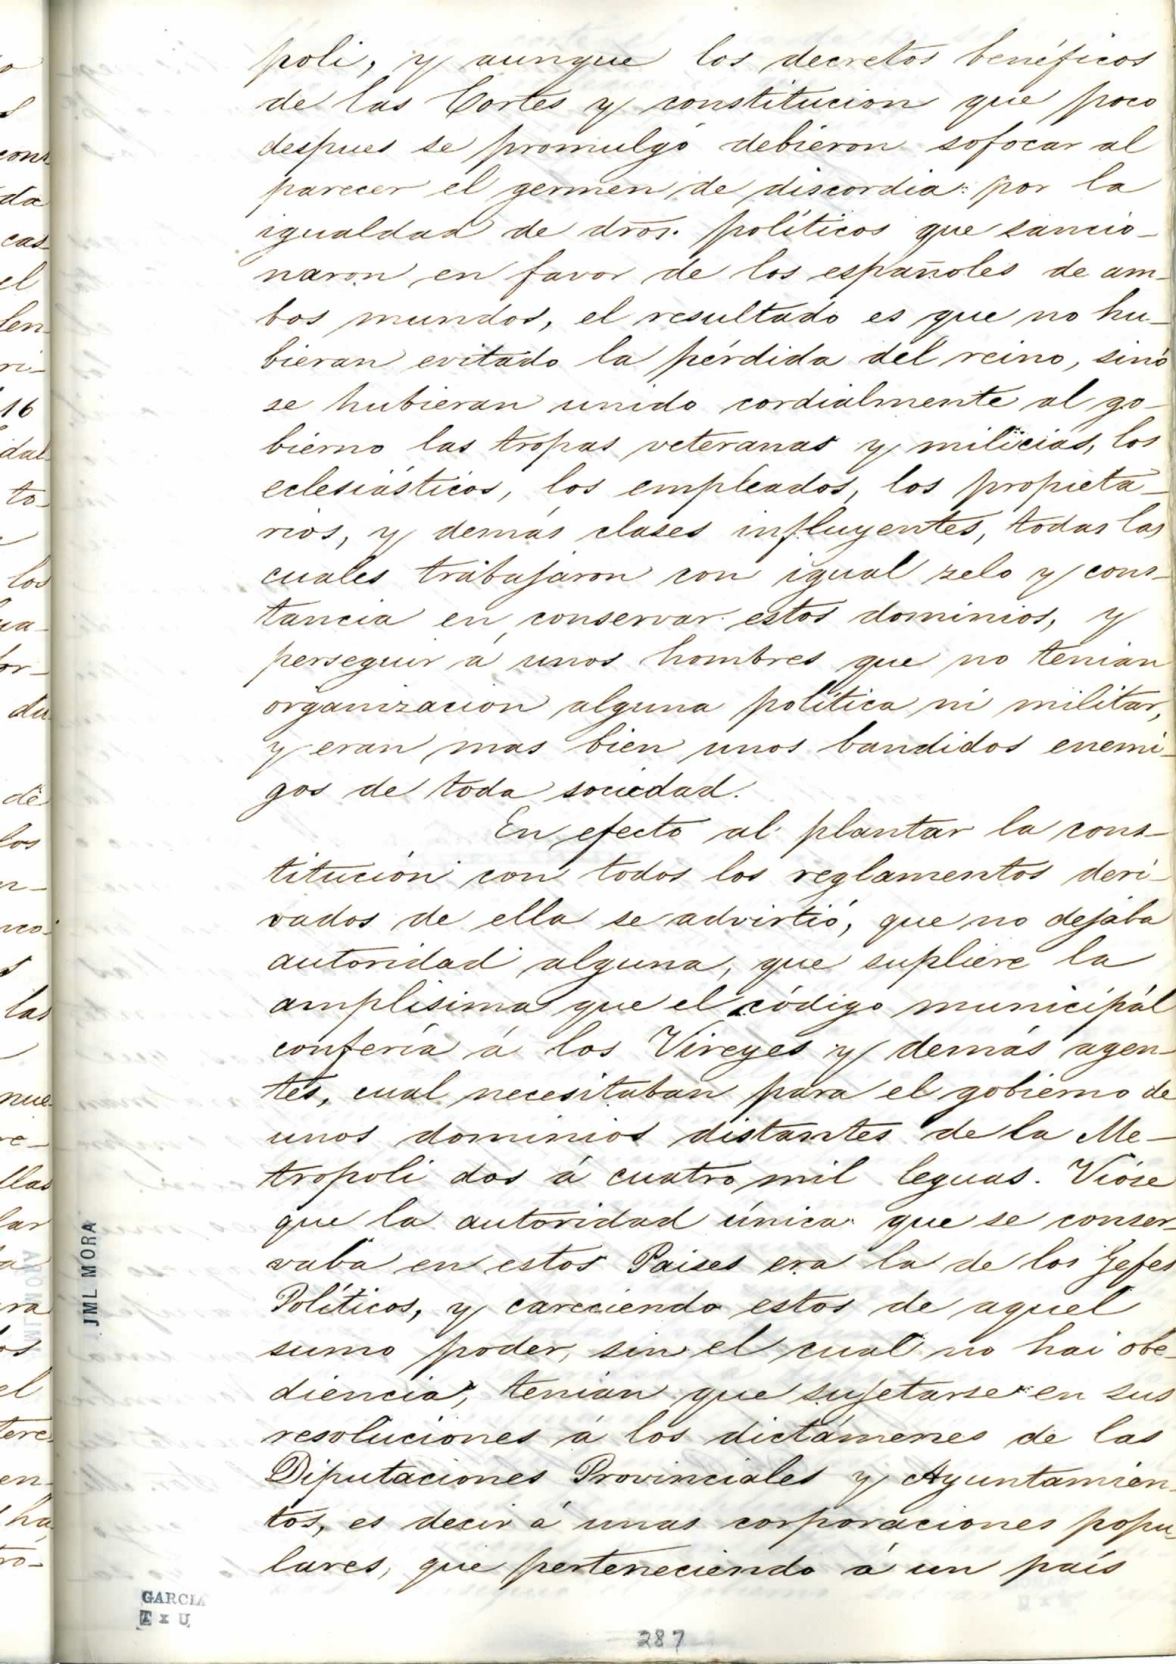 poli, y aunque los decretos benéficos
de las Cortes y constitucion que poco
despues se promulgó debieron sofocar al
parecer el germen de discordia por la
igualdad de dros. políticos que sancio-
naron en favor de los españoles de am-
bos mundos, el resultado es que no hu-
bieran evitado la pérdida del reino, sinó
se hubieran unido cordialmente al go-
bierno las tropas veteranas y milicias, los
eclesiásticos, los empleados, los propieta-
rios, y demás clases influyentes, todas las
cuales trabajaron con igual zelo y cons-
tancia en conservar estos dominios, y
perseguir á unos hombres que no tenian
organizacion alguna política ni militar,
y eran mas bien unos bandidos enemi-
gos de toda sociedad.
En efecto al plantar la cons-
titución con todos los reglamentos deri-
vados de ella se advirtió, que no dejaba
autoridad alguna, que supliere la
amplisima que el código municipál
conferia á los Vireyes y demás agen-
tes, cual necesitaban para el gobierno de
unos dominios distantes de la Me-
tropoli dos á cuatro mil leguas. Vióse
que la autoridad única que se conser-
vaba en estos Paises era la de los Jefes
Políticos, y careciendo estos de aquel
sumo poder, sin el cual no hai obe-
diencia, tenian que sujetarse en sus
resoluciones á los dictámenes de las
Diputaciones Provinciales y Ayuntamien-
tos, es decir á unas corporaciones popu-
lares, que perteneciendo á un país
JML MORA
GARCIA
T x U
287